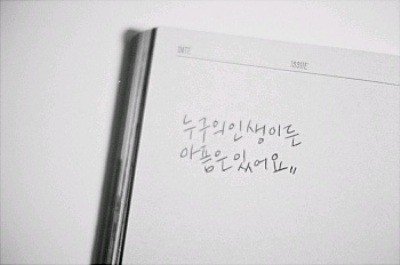 DATE ISSUE
누구의인생이든
아픔은있어요,,